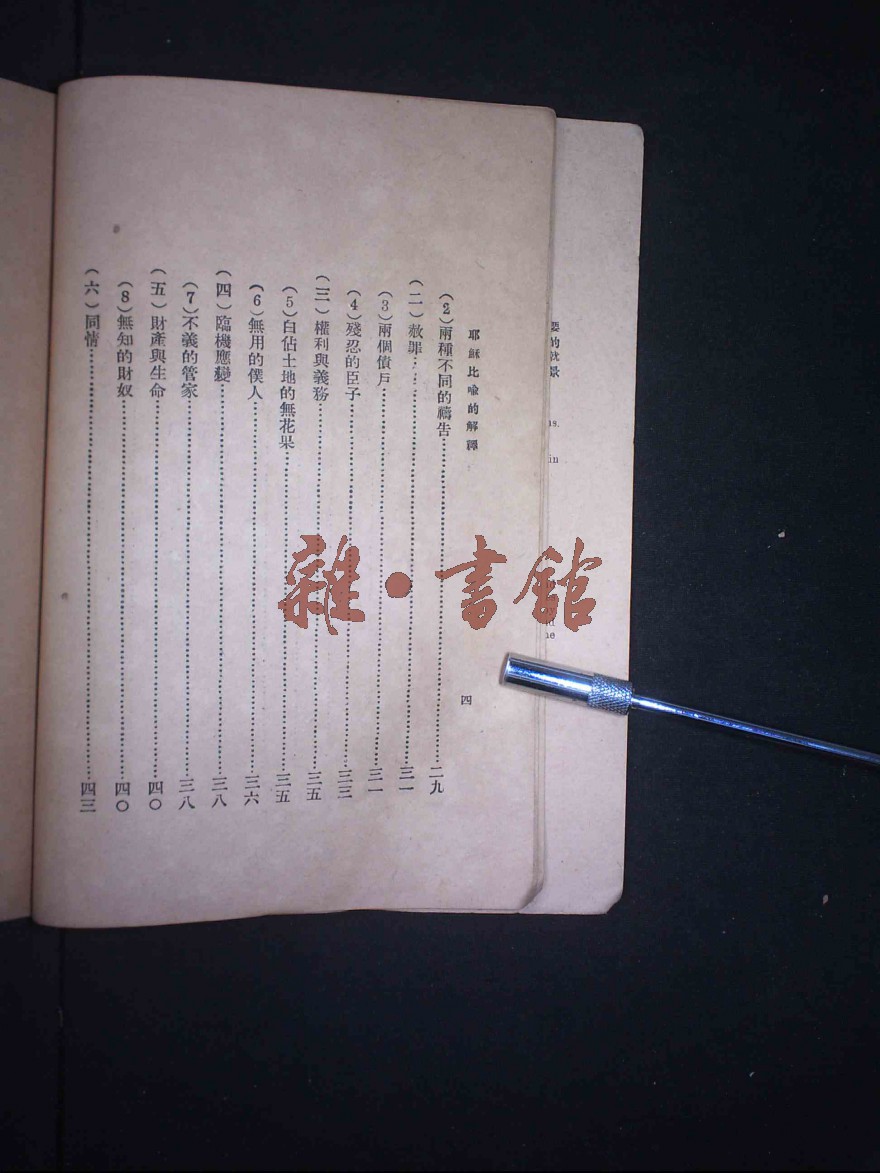 耶穌比喻的解釋
四
（2）兩種不同的禱告……二九
（二）赦罪……三一
（3）兩個債戶……三一
（4）殘忍的臣子……三三
（三）權利與義務……三五
（5）白佔土地的無花果……三五
（6）無用的僕人……三六
（四）臨機應變……三八
（7）不義的管家……三八
（五）財產與生命……四〇
（8）無知的財奴……四〇
（六）同情……四三
雜·書館
in